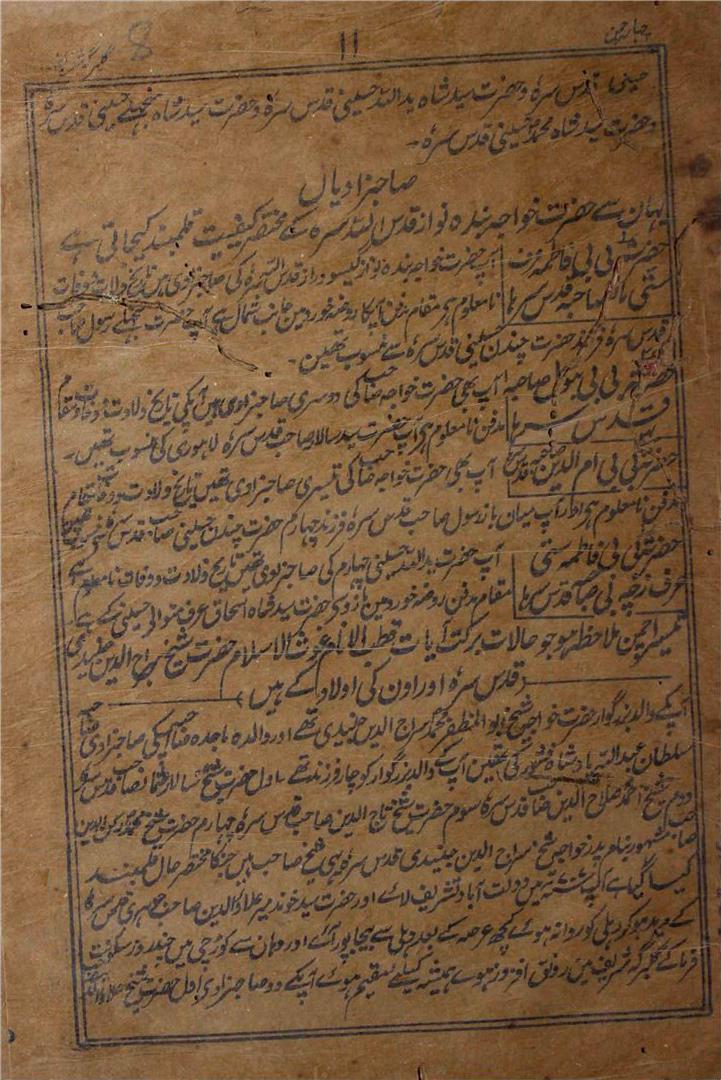 چہارچمن 11 گلبرگہ شریف 8
حسینی قدس سرہٗ و حضرت سید شاہ ید اللہ حسینی قدس سرہٗ و حضرت سید شاہ منجھلے حسینی قدس سرہٗ
و حضرت سید شاہ محمد حسینی قدس سرہٗ ۔
صاحبزادیاں
یہان سے حضرت خواجہ بندہ نواز قدس اللہ سرہ کے مختصر کیفیت قلمبند کیجاتی ہے
حضرت بی بی فاطمہ عرف
آپ حضرت خواجہ بندہ نواز گیسودراز قدس اللہ سرہٗ کی صاحبزادی ہیں تاریخ ولادت و وفات
ستی صاحبہ قدس سرہا
نامعلوم ہی مقام مدفن آپکا روضہ خوردمین جانب شمال ہے آپ حضرت
قدس سرہٗ فرزند حضرت چندن حسینی قدس سرہٗ سے منسوب تھین ۔
حضرت بی بی بتول صاحبہ
آپ بھی حضرت خواجہ صاحب کی دوسری صاحبزادی ہیں آپکی تاریخ ولادت و وفات و مقام
قدس سرہا
مدفن نامعلوم ہی آپ حضرت سید سالار صاحب قدس سرہٗ لاہوری کی منسوب تھیں ۔
حضرت بی بی ام الدین صاحبہ قدس
آپ بھی حضرت خواجہ صاحب کی تیسری صاحبزادی تھیں تاریخ ولادت و وفات مقام
مدفن نامعلوم ہی اور آپ میان رسول صاحب قدس سرہٗ فرزند چہارم حضرت چندن حسینی صاحب قدس سرہٗ
حضرت بی بی فاطمہ ستی
آپ حضرت ید اللہ حسینی چہارم کی صاحبزادی تھین تاریخ ولادت و وفات نامعلوم ہے
عرف بی صاحبہ قدس سرہا
مقام مدفن روضہ خورد مین بازوی حضرت سید شاہ اسحاق عرف متوالی حسینی کے ہے
تیسرا چمن ملاحظہ ہو جو حالات برکت آیات قطب الانام غوث الاسلام حضرت شیخ سراج الدین جنیدی
(قدس سرہٗ اور اون کی اولاد کے ہیں)
آپکے والد بزرگوار حضرت خواجہ شیخ ابو المظفر محمد سراج الدین جنیدی تھے اور والدہ ماجدہ صاحبہ آپکی صاحبزادی
سلطان عبد اللہ بادشاہ کی تھین آپ کے والد بزرگوار کو چار فرزند تھے ۔ اول حضرت شیخ سالار صاحب قدس سرہٗ
دوم شیخ احمد صلاح الدین صاحب قدس سرہٗ سوم حضرت شیخ تاج الدین صاحب قدس سرہٗ چہارم حضرت شیخ محمد رکن الدین
صاحب مشہور بنام پدر خواجہ شیخ سراج الدین جنیدی قدس سرہٗ یہی شیخ صاحب ہیں جنکا مختصر حال قلمبند
کیا گیا ہے آپ میں دولت آباد تشریف لائے اور حضرت سید خوندمیر علاؤ الدین صاحب قدس سرہٗ
کے مرید ہو کر دہلی کو روانہ ہوئے کچھ عرصہ کے بعد دہلی سے بیجاپور آئے اور وہان سے کوڑچی میں چند روز سکونت
فرما کے گلبرگہ شریف مین رونق افروز ہوے ہمیشہ کیلئے مقیم ہوئے آپکے دو صاحبزادی اول حضرت شیخ